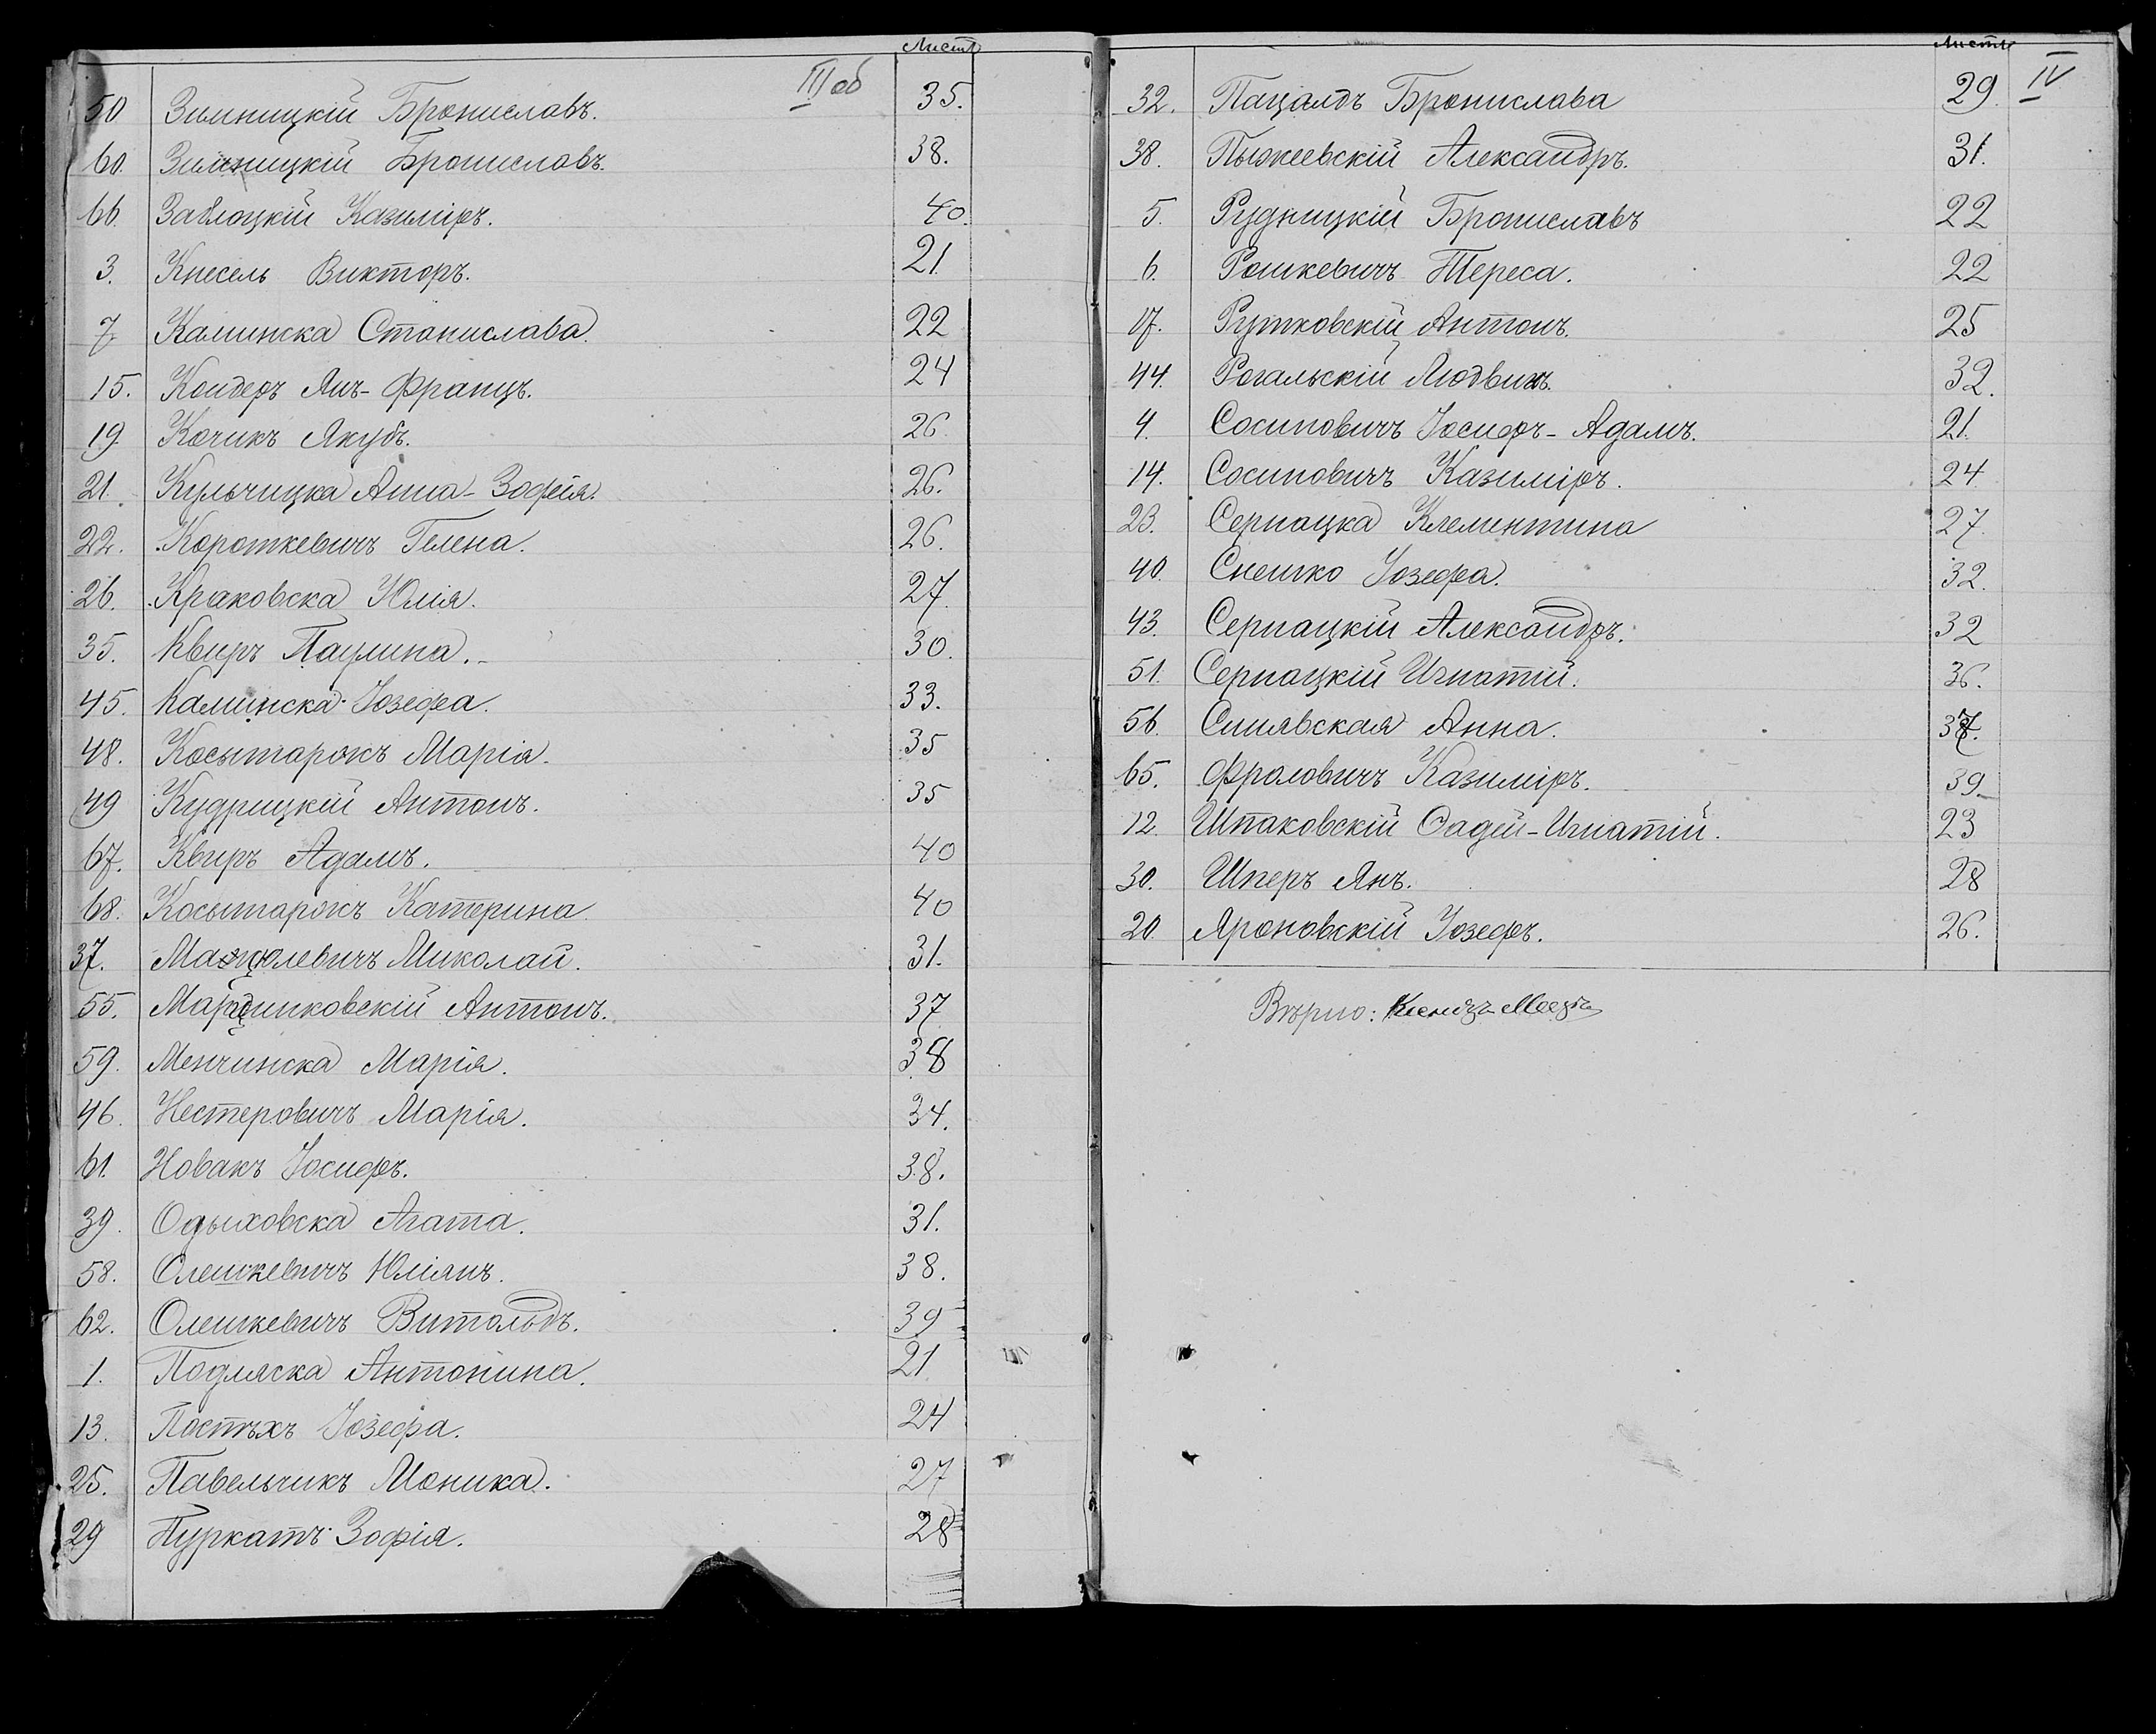 Листъ
III об
50 Зимницкій Брониславъ. 35.
60. Зимницкій Брониславъ. 38.
66. Заблоцкій Казиміръ. 40.
3. Кнесель Викторъ. 21.
7 Калинска Станислава. 22
15. Кондеръ Янъ-Францъ. 24
19. Кочикъ Якубъ. 26.
21. Кульчицка Анна-Зофія. 26.
22. Короткевичъ Гелена. 26.
26. Краковска Юлія. 27.
35. Квиръ Паулина. 30.
45. Калинска Іозефа. 33.
48. Косытарокъ Марія. 35
49 Кудрицкій Антонъ. 35
67. Квиръ Адамъ. 40
68. Косытарокъ Катерина. 40
37. Мацюлевичъ Миколай. 31.
55. Марцинковскій Антонъ. 37
59. Менчинска Марія. 38
46. Нестеровичъ Марія. 34.
61. Новакъ Іосифъ. 38.
39. Одыховска Агата. 31.
58. Олешкевичъ Юліянъ. 38.
62. Олешкевичъ Витольдъ. 39
1. Подляска Антонина. 21
13. Постѣхъ Іозефа. 24
25. Павельчикъ Моника. 27
29 Пуркатъ Зофія. 28
Листъ
IV
32. Пацалдъ Бронислава 29
38. Пыжеевскій Александръ. 31.
5. Рудницкій Брониславъ 22
6. Рошкевичъ Тереса. 22
17. Рутковскій Антонъ. 25
44. Рогальскій Людвикъ. 32.
4. Сосиновичъ Іосифъ-Адамъ. 21.
14. Сосиновичъ Казиміръ. 24
23. Серпацка Клементина 27.
40. Снешко Іозефа. 32.
43. Серпацкій Александръ. 32
51. Серпацкій Игнатій. 36.
56. Анна. 37.
65. Фроловичъ Казиміръ. 39.
12. Шпаковскій Ѳадей-Игнатій. 23
30. Шперъ Янъ. 28
20. Яроновскій Іозефъ. 26.
Вѣрно: